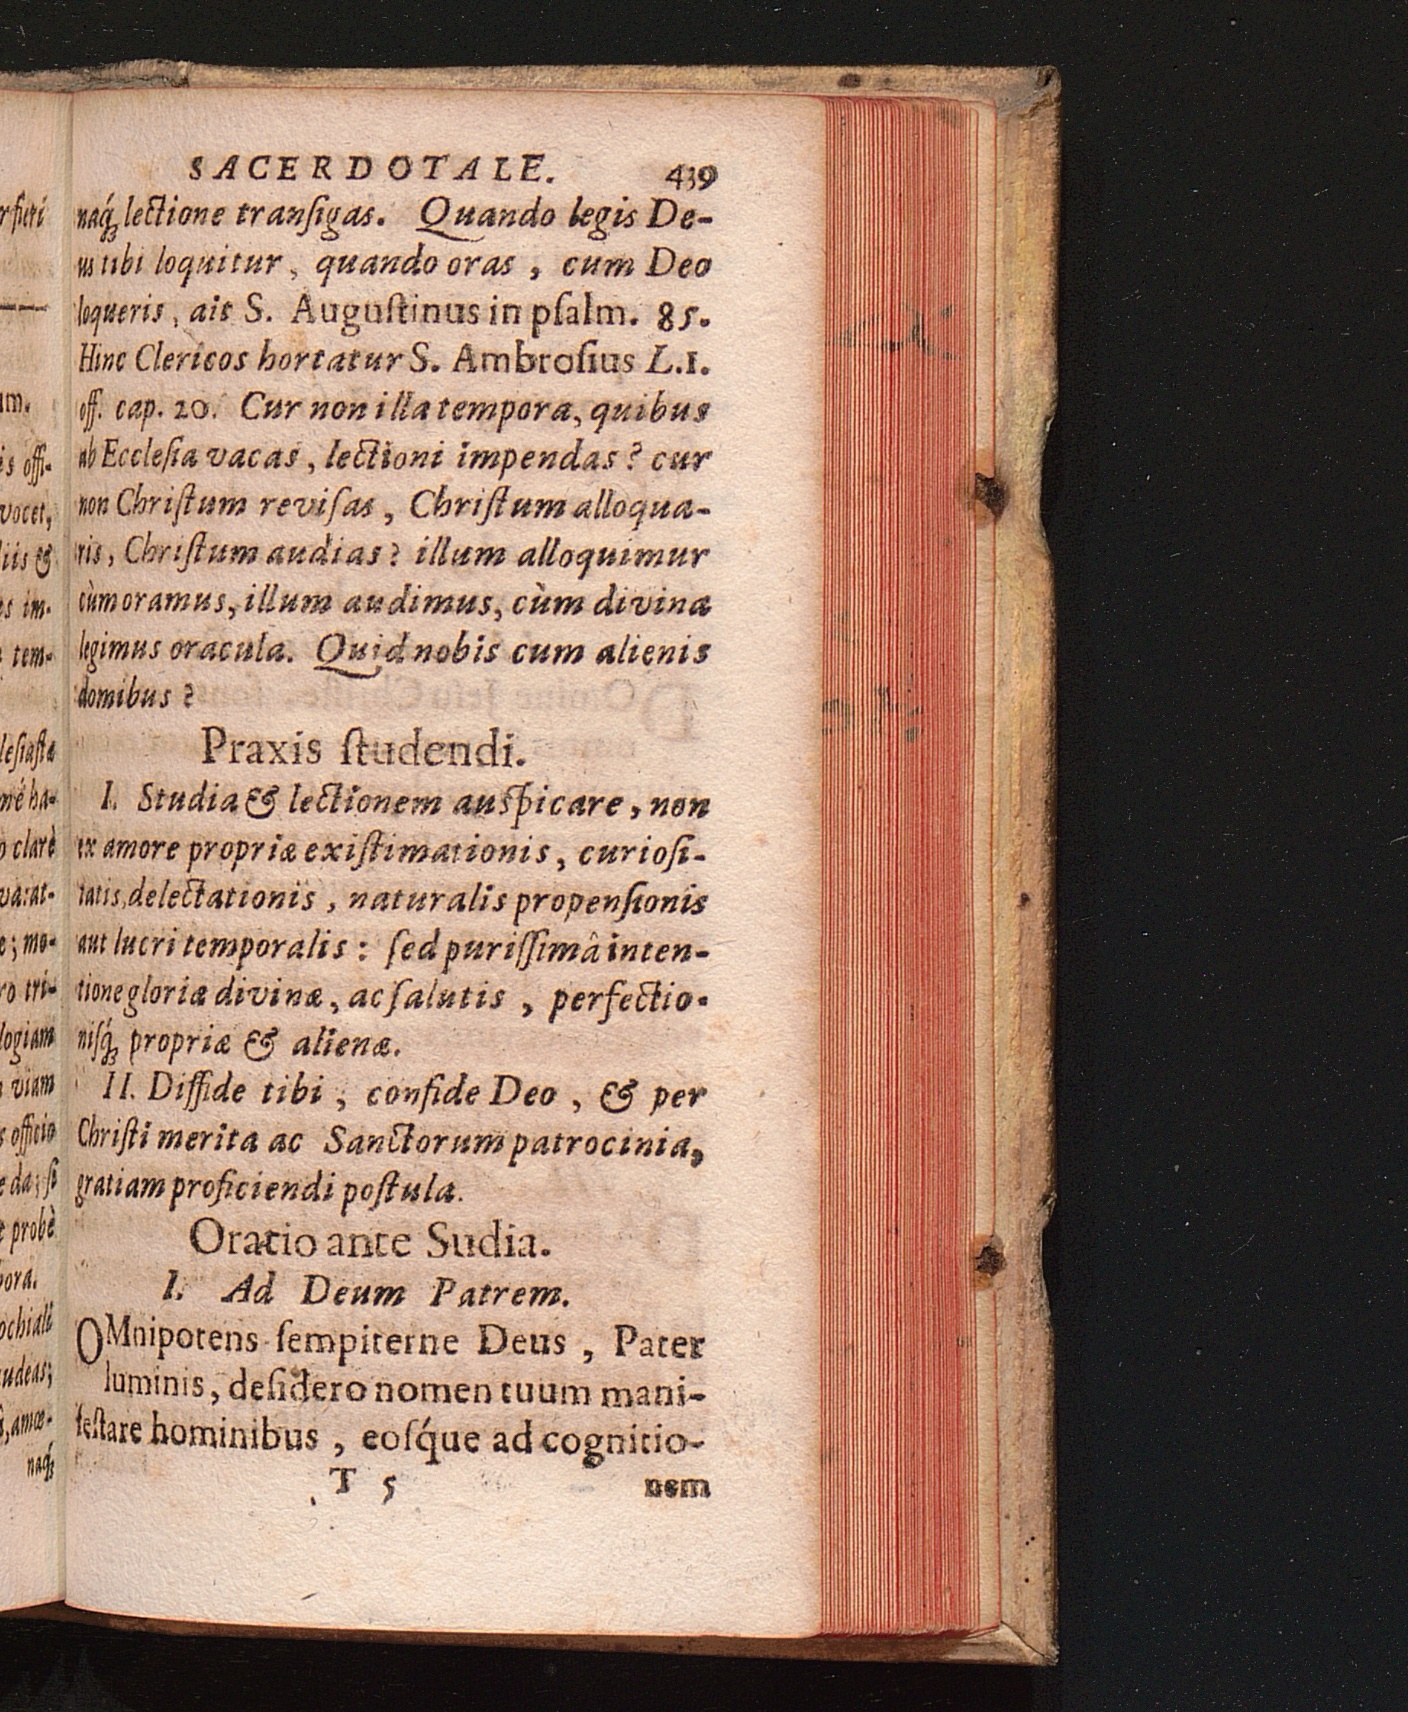 SACERDOTALE. 439
naq́ꝫ lectione tranſigas. Quando legis De-
us tibi loquitur, quando oras, cum Deo
loqueris, ait S. Auguſtinus in pſalm. 85.
Hinc Clericos hortatur S. Ambroſius L.1.
off. cap. 20. Cur non illa tempora, quibus
ab Eccleſia vacas, lectioni impendas? cur
non Chriſtum reviſas, Chriſtum alloqua-
ris, Chriſtum audias? illum alloquimur
cùm oramus, illum audimus, cùm divina
legimus oracula. Quid nobis cum alienis
domibus?
Praxis ſtudendi.
I. Studia & lectionem auſpicare, non
ex amore propriæ exiſtimationis, curioſi-
tatis, delectationis, naturalis propenſionis
aut lucri temporalis: ſed puriſſimâ inten-
tione gloriæ divinæ, ac ſalutis, perfectio-
niſq́ꝫ propriæ & alienæ.
II. Diffide tibi; confide Deo, & per
Chriſti merita ac Sanctorum patrocinia,
gratiam proficiendi poſtula.
Oratio ante Sudia.
I. Ad Deum Patrem.
OMnipotens ſempiterne Deus, Pater
luminis, deſidero nomen tuum mani-
feſtare hominibus, eoſq́ue ad cognitio-
T 5 nem